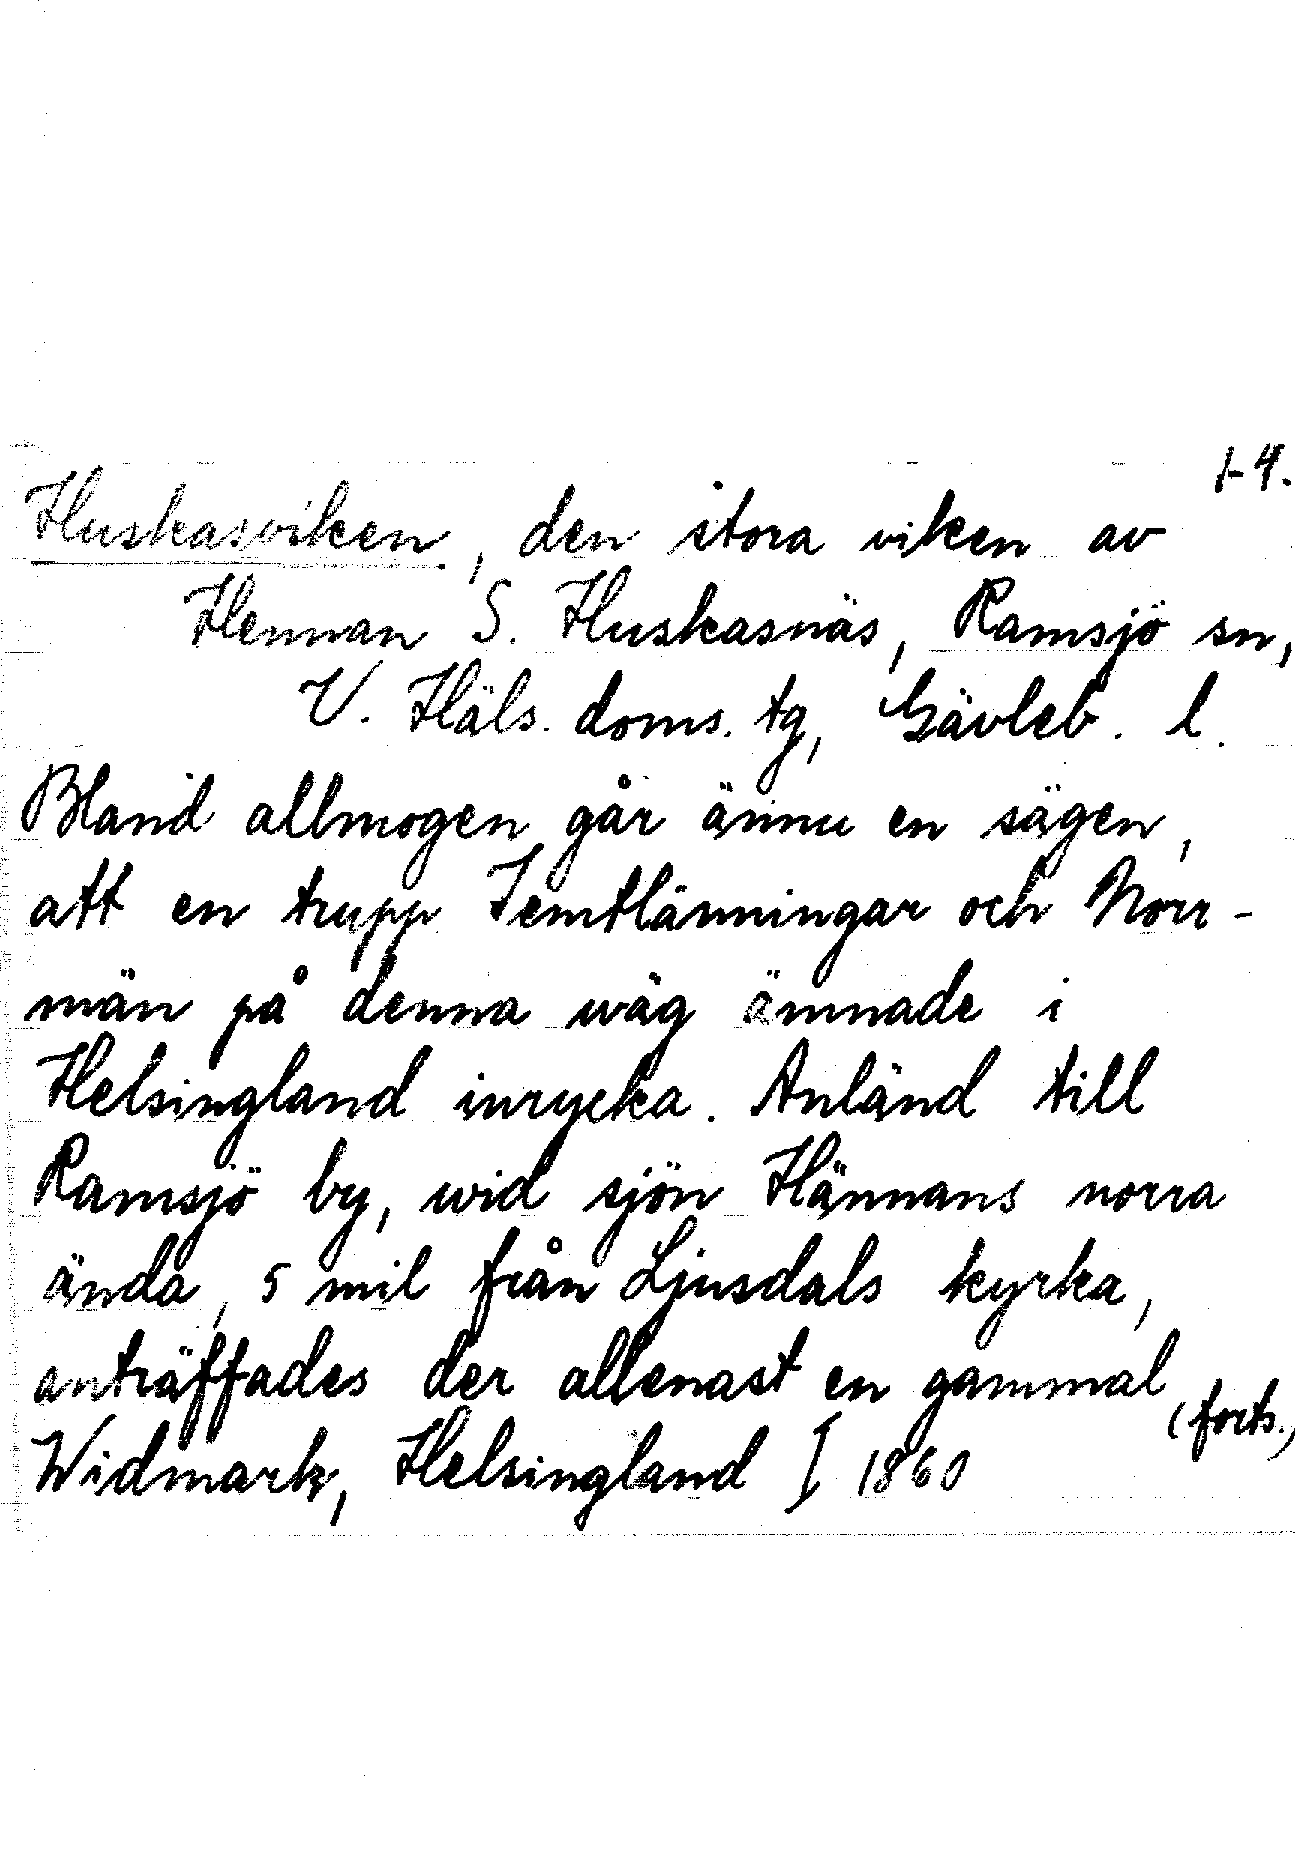 1-4.
Huskasviken, den stora viken av
Hennan S. Huskasnäs, Ramsjö sn,
V. Häls. doms. tg, Gävleb. l.
Bland allmogen går ännu en sägen,
att en trupp Jemtlänningar och Norr-
män på denna wäg ämnade i
Helsingland inrycka. Anländ till
Ramsjö by, wid sjön Hännans norra
ända, 5 mil från Ljusdals kyrka,
anträffades der allenast en gammal
(forts.)
Widmark, Helsingland I 1860